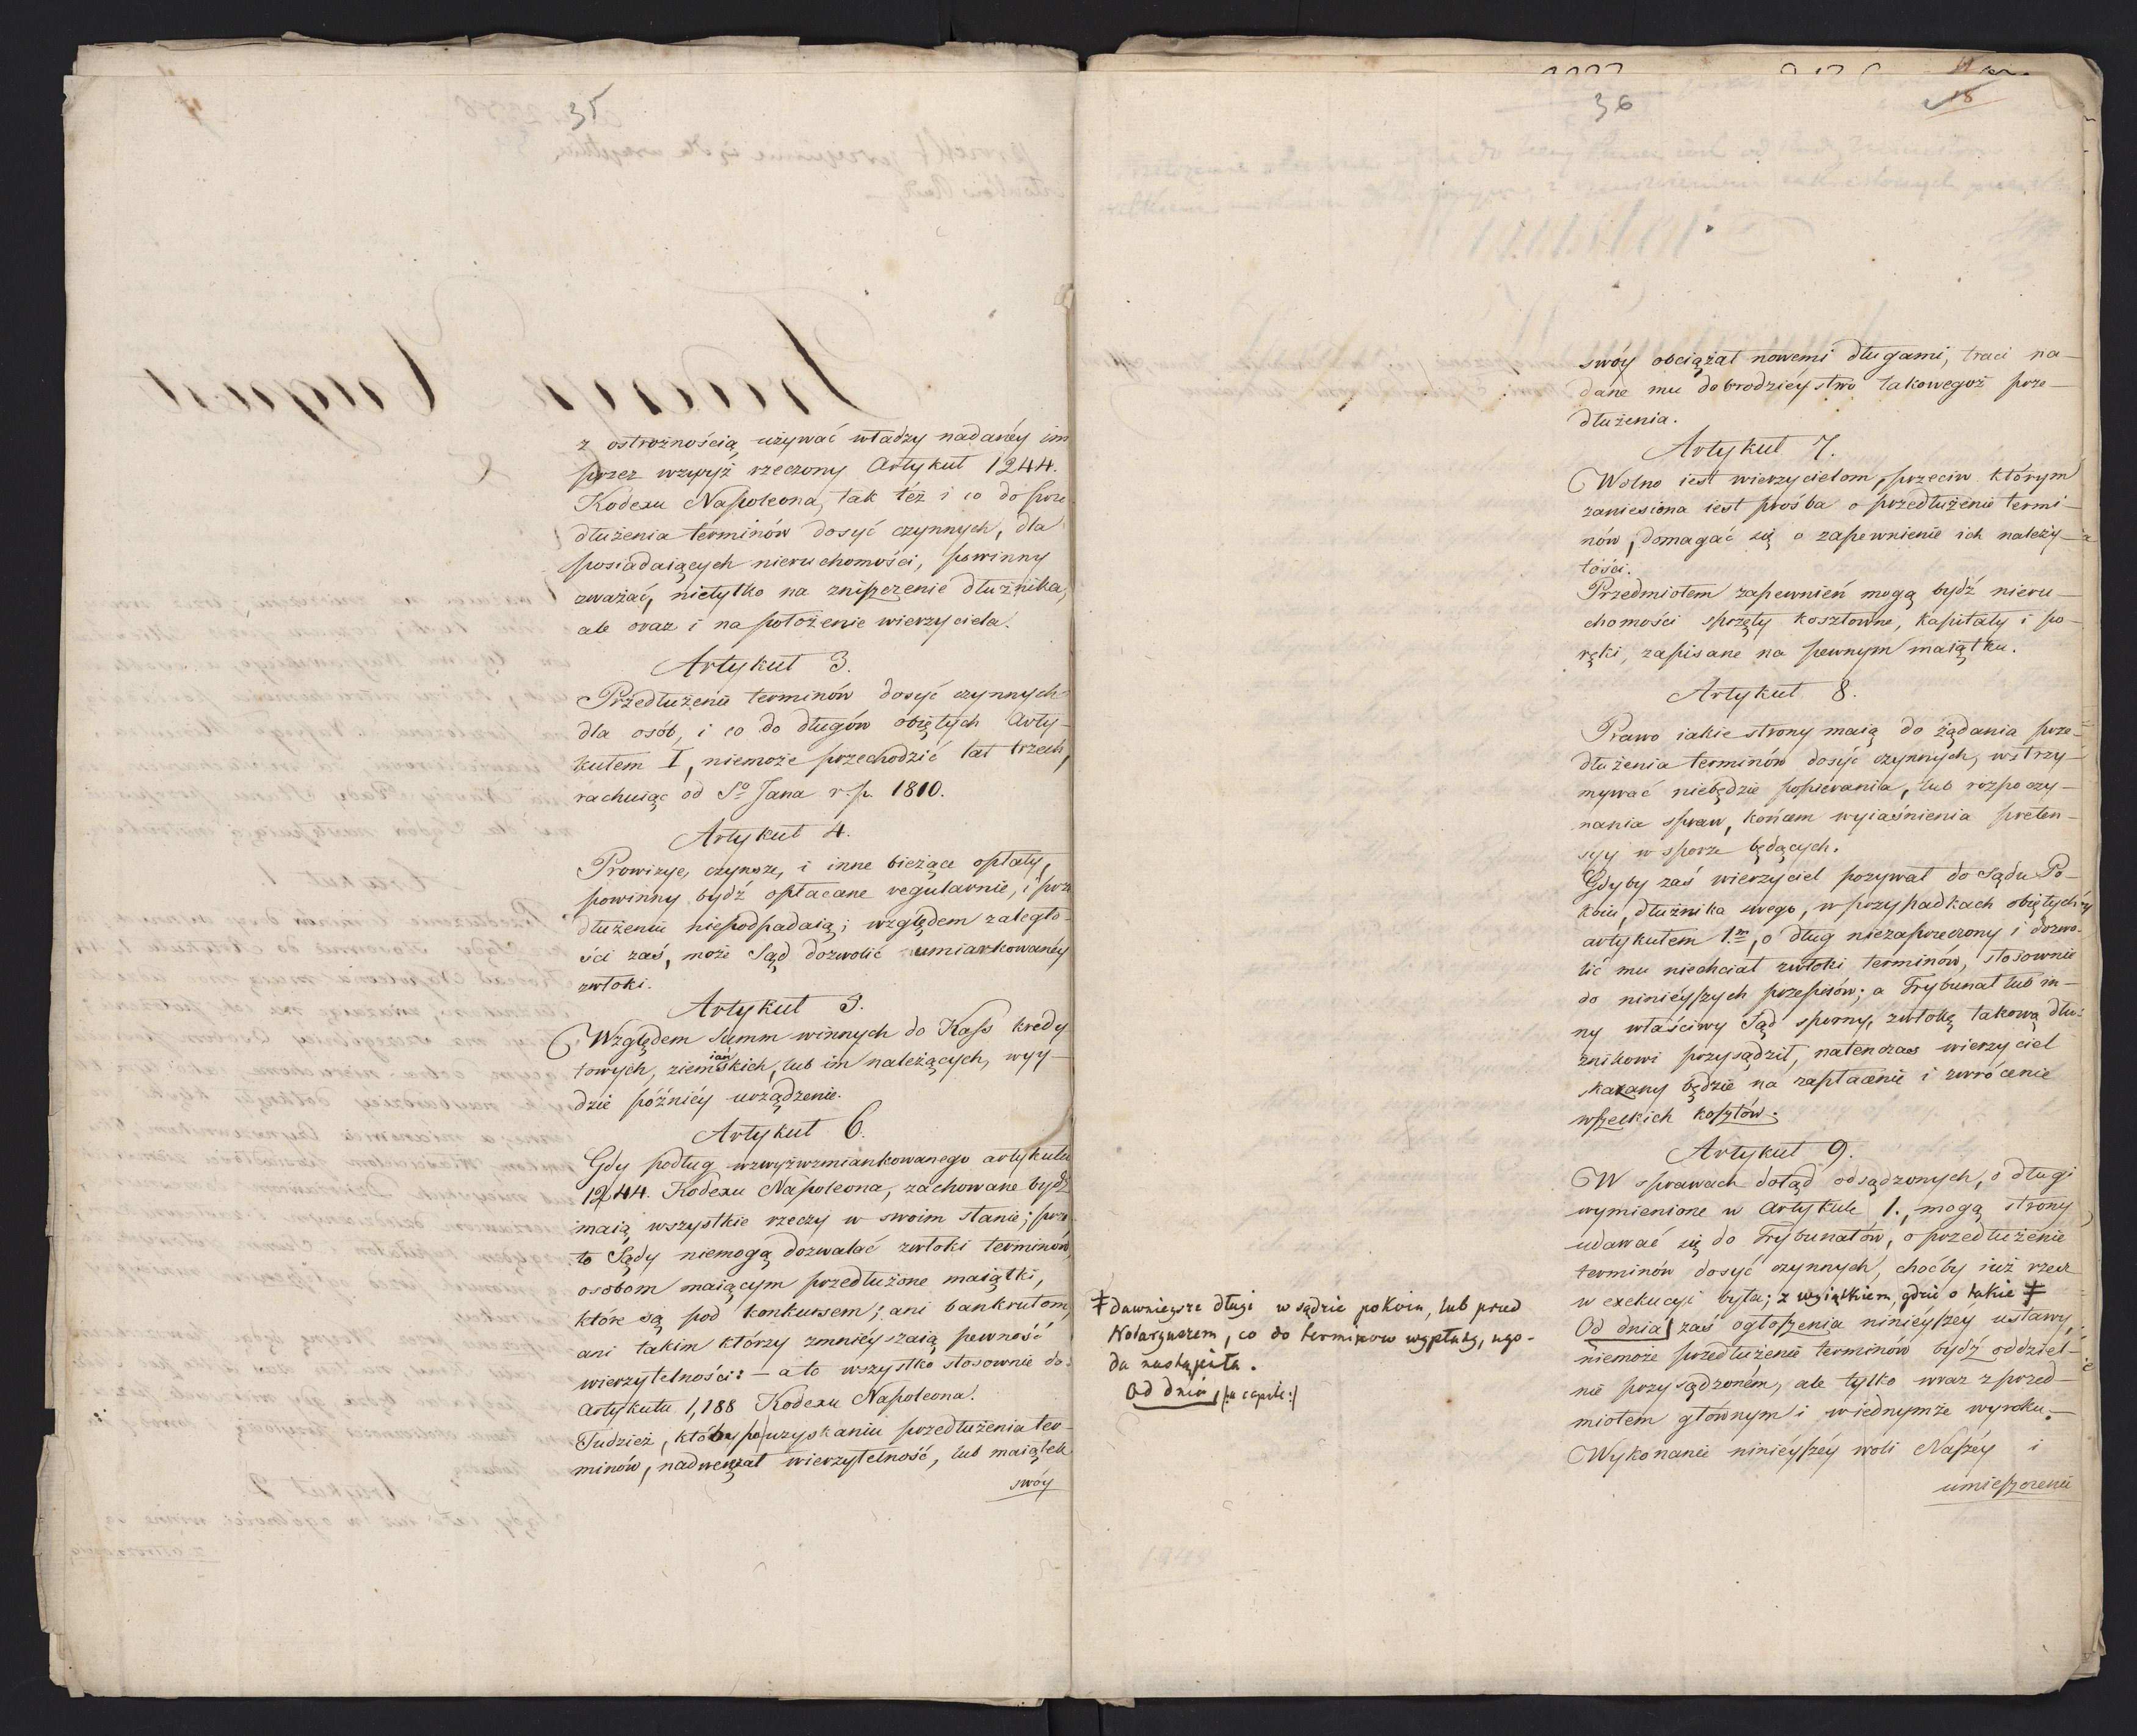 35
z ostrożnością używać władzy nadanéy im
przez wzwyż rzeczony Artykuł 1244.
Kodexu Napoleona, tak też i co do prze-
dłużenia terminów dosyć czynnych, dla
posiadaiących nieruchomości, powinny
zważać, nietylko na zniszczenie dłużnika,
ale oraz i na położenie wierzyciela.
Artykuł 3.
Przedłużenie terminów dosyć czynnych
dla osób, i co do długów obiętych Arty-
kułem I, niemoże przechodzić lat trzech,
rachuiąc od So Jana r. p. 1810.
Artykuł 4.
Prowizye, czynsze, i inne bieżące opłaty,
powinny bydź opłacane regularnie, i prze
dłużeniu niepodpadaią; względem zaległo-
ści zaś, może Sąd dozwolić umiarkowanéy
zwłoki.
Artykuł 5.
Względem Summ winnych do Kass kredy
towych, ziemiańskich, lub im należących, wyy-
dzie późniéy urządzenie.
Artykuł 6.
Gdy podług wzwyżwzmiankowanego artykułu
1244. Kodexu Napoleona, zachowane bydź
maią wszystkie rzeczy w swoim stanie; prze
to Sądy niemogą dozwalać zwłoki terminów,
osobom maiącym przedłużone maiątki,
które są pod konkursem; ani bankrutom,
ani takim którzy zmniéyszaią pewność
wierzytelności: – a to wszystko stosownie do
Artykułu 1,188 Kodexu Napoleona.
Tudzież, któby po uzyskaniu przedłużenia ter-
minów, nadwerężał wierzytelność, lub maiątek
swóy
36
18
swóy obciążał nowemi długami, traci na-
dane mu dobrodzieystwo takowegoż prze-
dłużenia.
Artykuł 7.
Wolno iest wierzycielom, przeciw którym
zaniesiona iest prośba o przedłużenie termi-
nów, domagać się o zapewnienie ich należy-
tości.
Przedmiotem zapewnień mogą bydź nieru-
chomości sprzęty kosztowne, kapitały i po-
ręki, zapisane na pewnym maiątku.
Artykuł 8.
Prawo iakie strony maią do żądania prze-
dłużenia terminów dosyć czynnych, wstrzy-
mywać niebędzie popierania, lub rozpoczy-
nania spraw, końcem wyiaśnienia preten-
syy w sporze będących.
Gdyby zaś wierzyciel pozywał do Sądu Po-
koiu, dłużnika swego, w przypadkach obiętych
artykułem 1.m, o dług niezaprzeczony i dozwo-
lić mu niechciał zwłoki terminów, stosownie
do ninieyszych przepisów; a Trybunał lub in-
ny właściwy Sąd sporny, zwłokę takową dłu-
żnikowi przysądził, natenczas wierzyciel
skazany będzie na zapłacenie i zwrócenie
wszelkich kosztów.
Artykuł 9.
W sprawach dotąd odsądzonych, o długi
wymienione w Artykule 1., mogą strony
udawać się do Trybunałów, o przedłużenie
terminów dosyć czynnych, choćby iuż rzecz
w exekucyi była; z wyiątkiem, gdzie o takie ‡
Od dnia zaś ogłoszenia ninieyszéy ustawy,
niemoże przedłużenie terminów bydź oddziel-
nie przysądzoném, ale tylko wraz z przed-
miotem głównym i w iednymże wyroku.
Wykonanie ninieyszéy woli Naszéy i
umieszczenie
‡ dawnieysze długi w sądzie pokoiu, lub przed
Notaryuszem, co do terminow wypłaty, ugo-
da nastąpiła.
Od dnia (:a capite:)